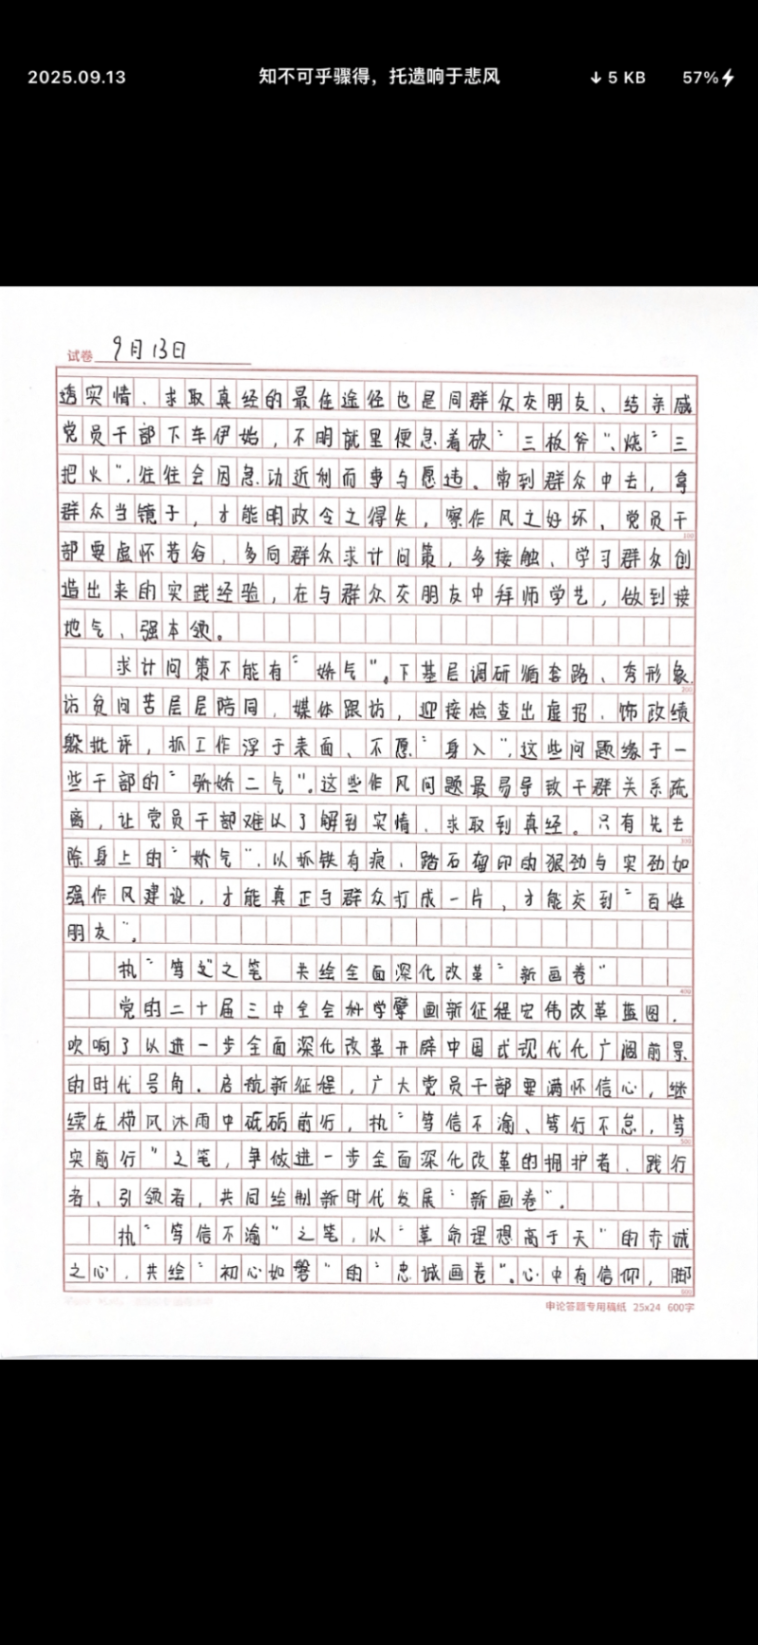 2025.09.13
知不可乎骤得，托遗响于悲风
↓ 5 KB
57%
试卷 9月13日
透实情、求取真经的最佳途径也是同群众交朋友、结亲戚
党员干部下车伊始，不明就里便急着砍"三板斧"、烧"三
把火"，往往会因急功近利而事与愿违。常到群众中去，拿
群众当镜子，才能明政令之得失，察作风之好坏、党员干
部要虚怀若谷，多向群众求计问策，多接触、学习群众创
造出来的实践经验，在与群众交朋友中拜师学艺，做到接
地气、强本领。
求计问策不能有"娇气"。下基层调研循套路、秀形象，
访贫问苦层层陪同，媒体跟访，迎接检查出虚招，饰政绩
躲批评，抓工作浮于表面、不愿"身入"，这些问题缘于一
些干部的"骄娇二气"。这些作风问题最易导致干群关系疏
离，让党员干部难以了解到实情、求取到真经。只有先去
除身上的"娇气"，以抓铁有痕、踏石留印的狠劲与实劲加
强作风建设，才能真正与群众打成一片，才能交到"百姓
朋友"。
执"笃文"之笔 共绘全面深化改革"新画卷"
党的二十届三中全会科学擘画新征程宏伟改革蓝图，
吹响了以进一步全面深化改革开辟中国式现代化广阔前景
的时代号角。启航新征程，广大党员干部要满怀信心，继
续在栉风沐雨中砥砺前行，执"笃信不渝、笃行不怠，笃
实前行"之笔，争做进一步全面深化改革的拥护者、践行
者、引领者，共同绘制新时代发展"新画卷"。
执"笃信不渝"之笔，以"革命理想高于天"的赤诚
之心，共绘"初心如磐"的"忠诚画卷"。心中有信仰，脚
申论答题专用稿纸 25x24 600字